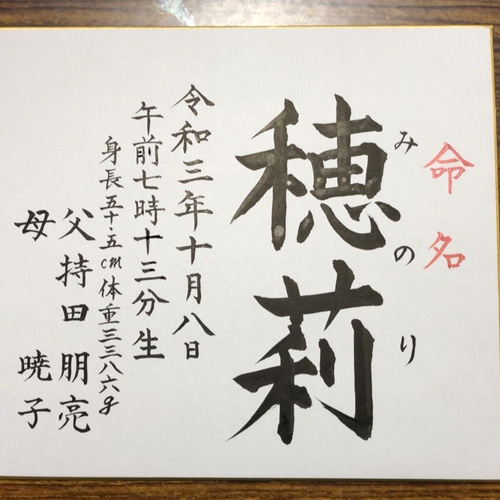 命名
みのり
穂莉
令和三年十月八日
午前七時十三分生
身長五十.五cm体重三三八六g
父持田朋亮
母暁子